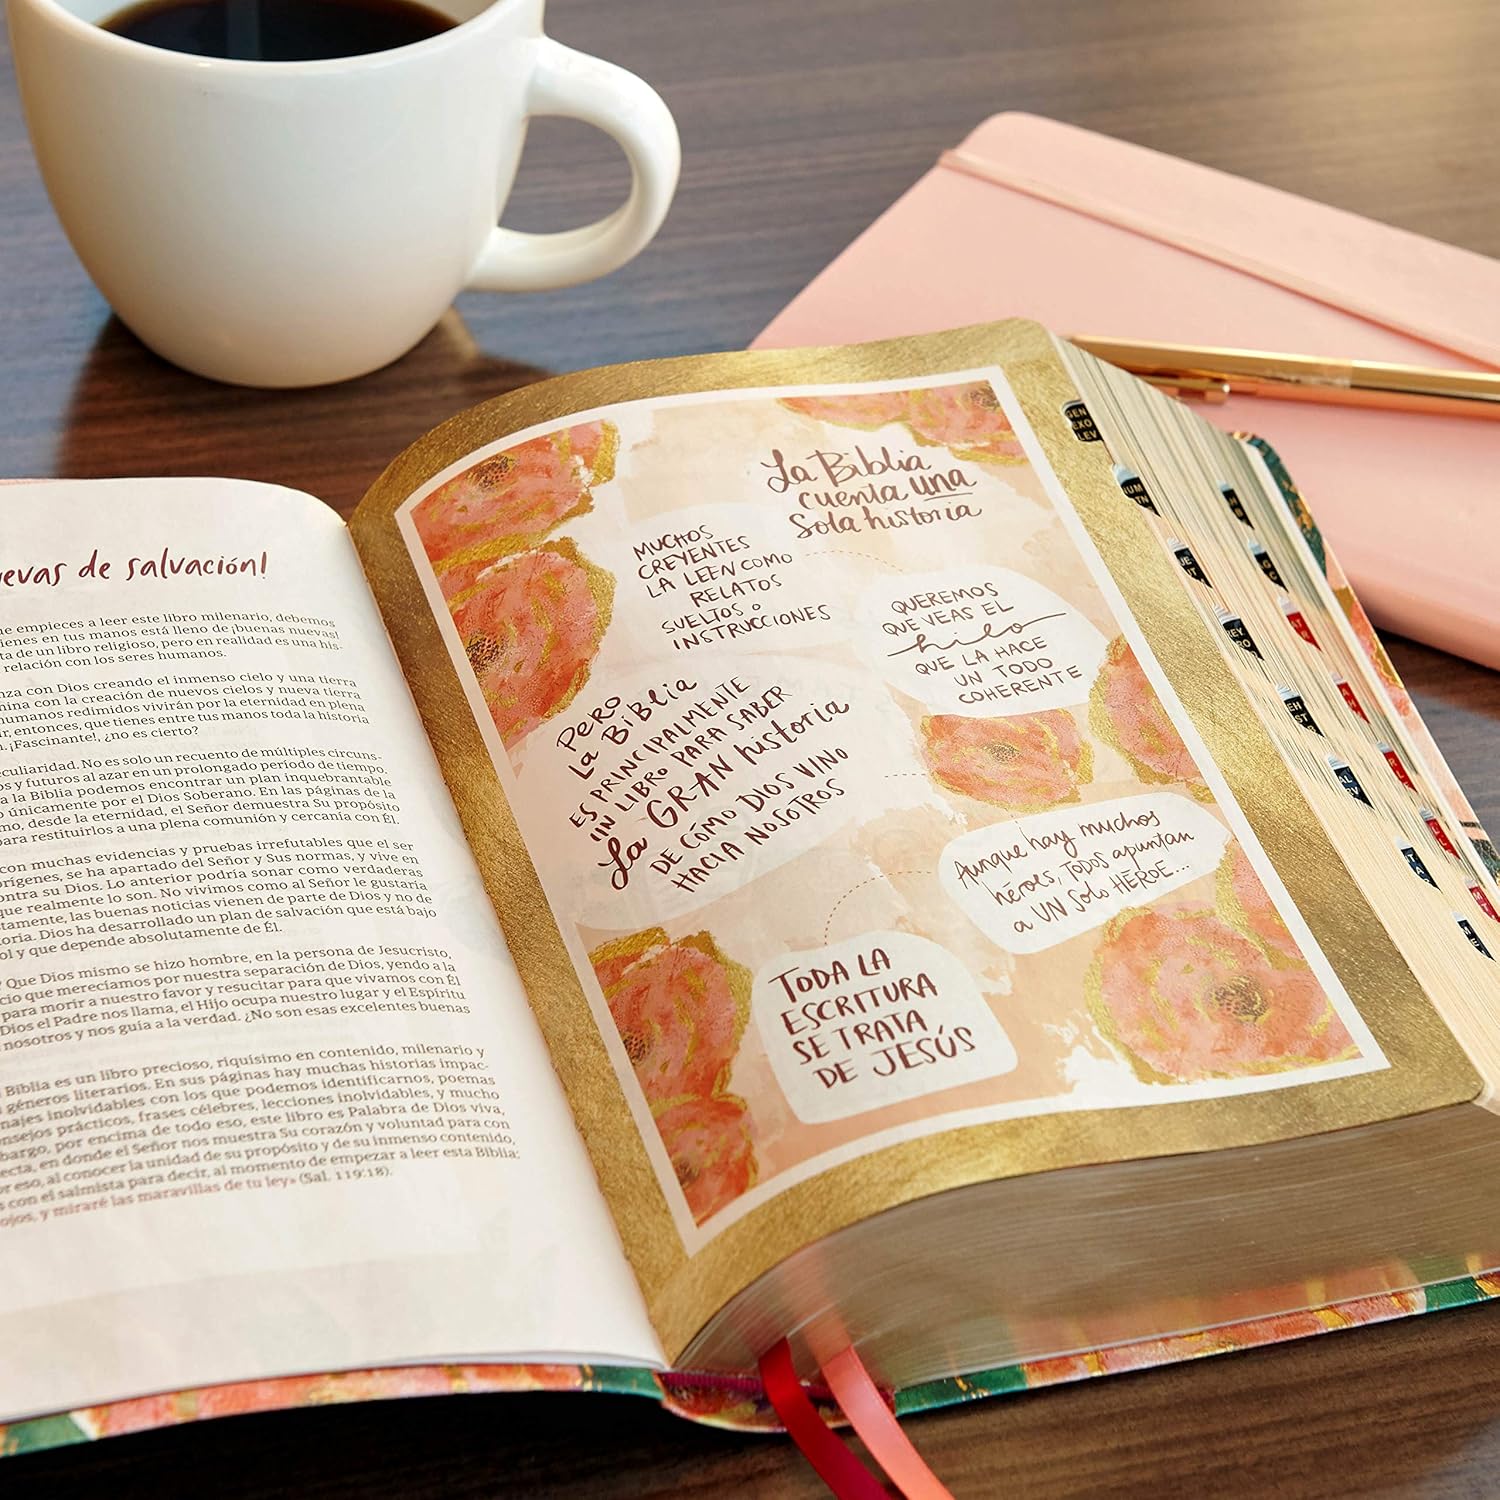 evas de salvación!
e empieces a leer este libro milenario, debemos
ienes en tus manos está lleno de ¡buenas nuevas!
ta de un libro religioso, pero en realidad es una his-
relación con los seres humanos.
nza con Dios creando el inmenso cielo y una tierra
mina con la creación de nuevos cielos y nueva tierra
humanos redimidos vivirán por la eternidad en plena
ir, entonces, que tienes entre tus manos toda la historia
n. ¡Fascinante!, ¿no es cierto?
eculiaridad. No es solo un recuento de múltiples circuns-
s y futuros al azar en un prolongado período de tiempo.
a la Biblia podemos encontrar un plan inquebrantable
o únicamente por el Dios Soberano. En las páginas de la
mo, desde la eternidad, el Señor demuestra Su propósito
para restituirlos a una plena comunión y cercanía con Él.
con muchas evidencias y pruebas irrefutables que el ser
orígenes, se ha apartado del Señor y Sus normas, y vive en
ontra su Dios. Lo anterior podría sonar como verdaderas
que realmente lo son. No vivimos como al Señor le gustaría
stamente, las buenas noticias vienen de parte de Dios y no de
toria. Dios ha desarrollado un plan de salvación que está bajo
ol y que depende absolutamente de Él.
? Que Dios mismo se hizo hombre, en la persona de Jesucristo,
cio que merecíamos por nuestra separación de Dios, yendo a la
para morir a nuestro favor y resucitar para que vivamos con Él
Dios el Padre nos llama, el Hijo ocupa nuestro lugar y el Espíritu
nosotros y nos guía a la verdad. ¿No son esas excelentes buenas
Biblia es un libro precioso, riquísimo en contenido, milenario y
géneros literarios. En sus páginas hay muchas historias impac-
najes inolvidables con los que podemos identificarnos, poemas
onsejos prácticos, frases célebres, lecciones inolvidables, y mucho
bargo, por encima de todo eso, este libro es Palabra de Dios viva,
ecta, en donde el Señor nos muestra Su corazón y voluntad para con
or eso, al conocer la unidad de su propósito y de su inmenso contenido,
s con el salmista para decir, al momento de empezar a leer esta Biblia:
ojos, y miraré las maravillas de tu ley» (Sal. 119:18).
La Biblia
cuenta una
Sola historia
MUCHOS
CREYENTES
LA LEEN COMO
RELATOS
SUELTOS O
INSTRUCCIONES
QUEREMOS
QUE VEAS EL
hilo
QUE LA HACE
UN TODO
COHERENTE
PERO
LA BIBLIA
ES PRINCIPALMENTE
UN LIBRO PARA SABER
La GRAN historia
DE CÓMO DIOS VINO
HACIA NOSOTROS
Aunque hay muchos
héroes, TODOS apuntan
a UN Solo HÉROE...
TODA LA
ESCRITURA
SE TRATA
DE JESÚS
GEN
EXO
LEV